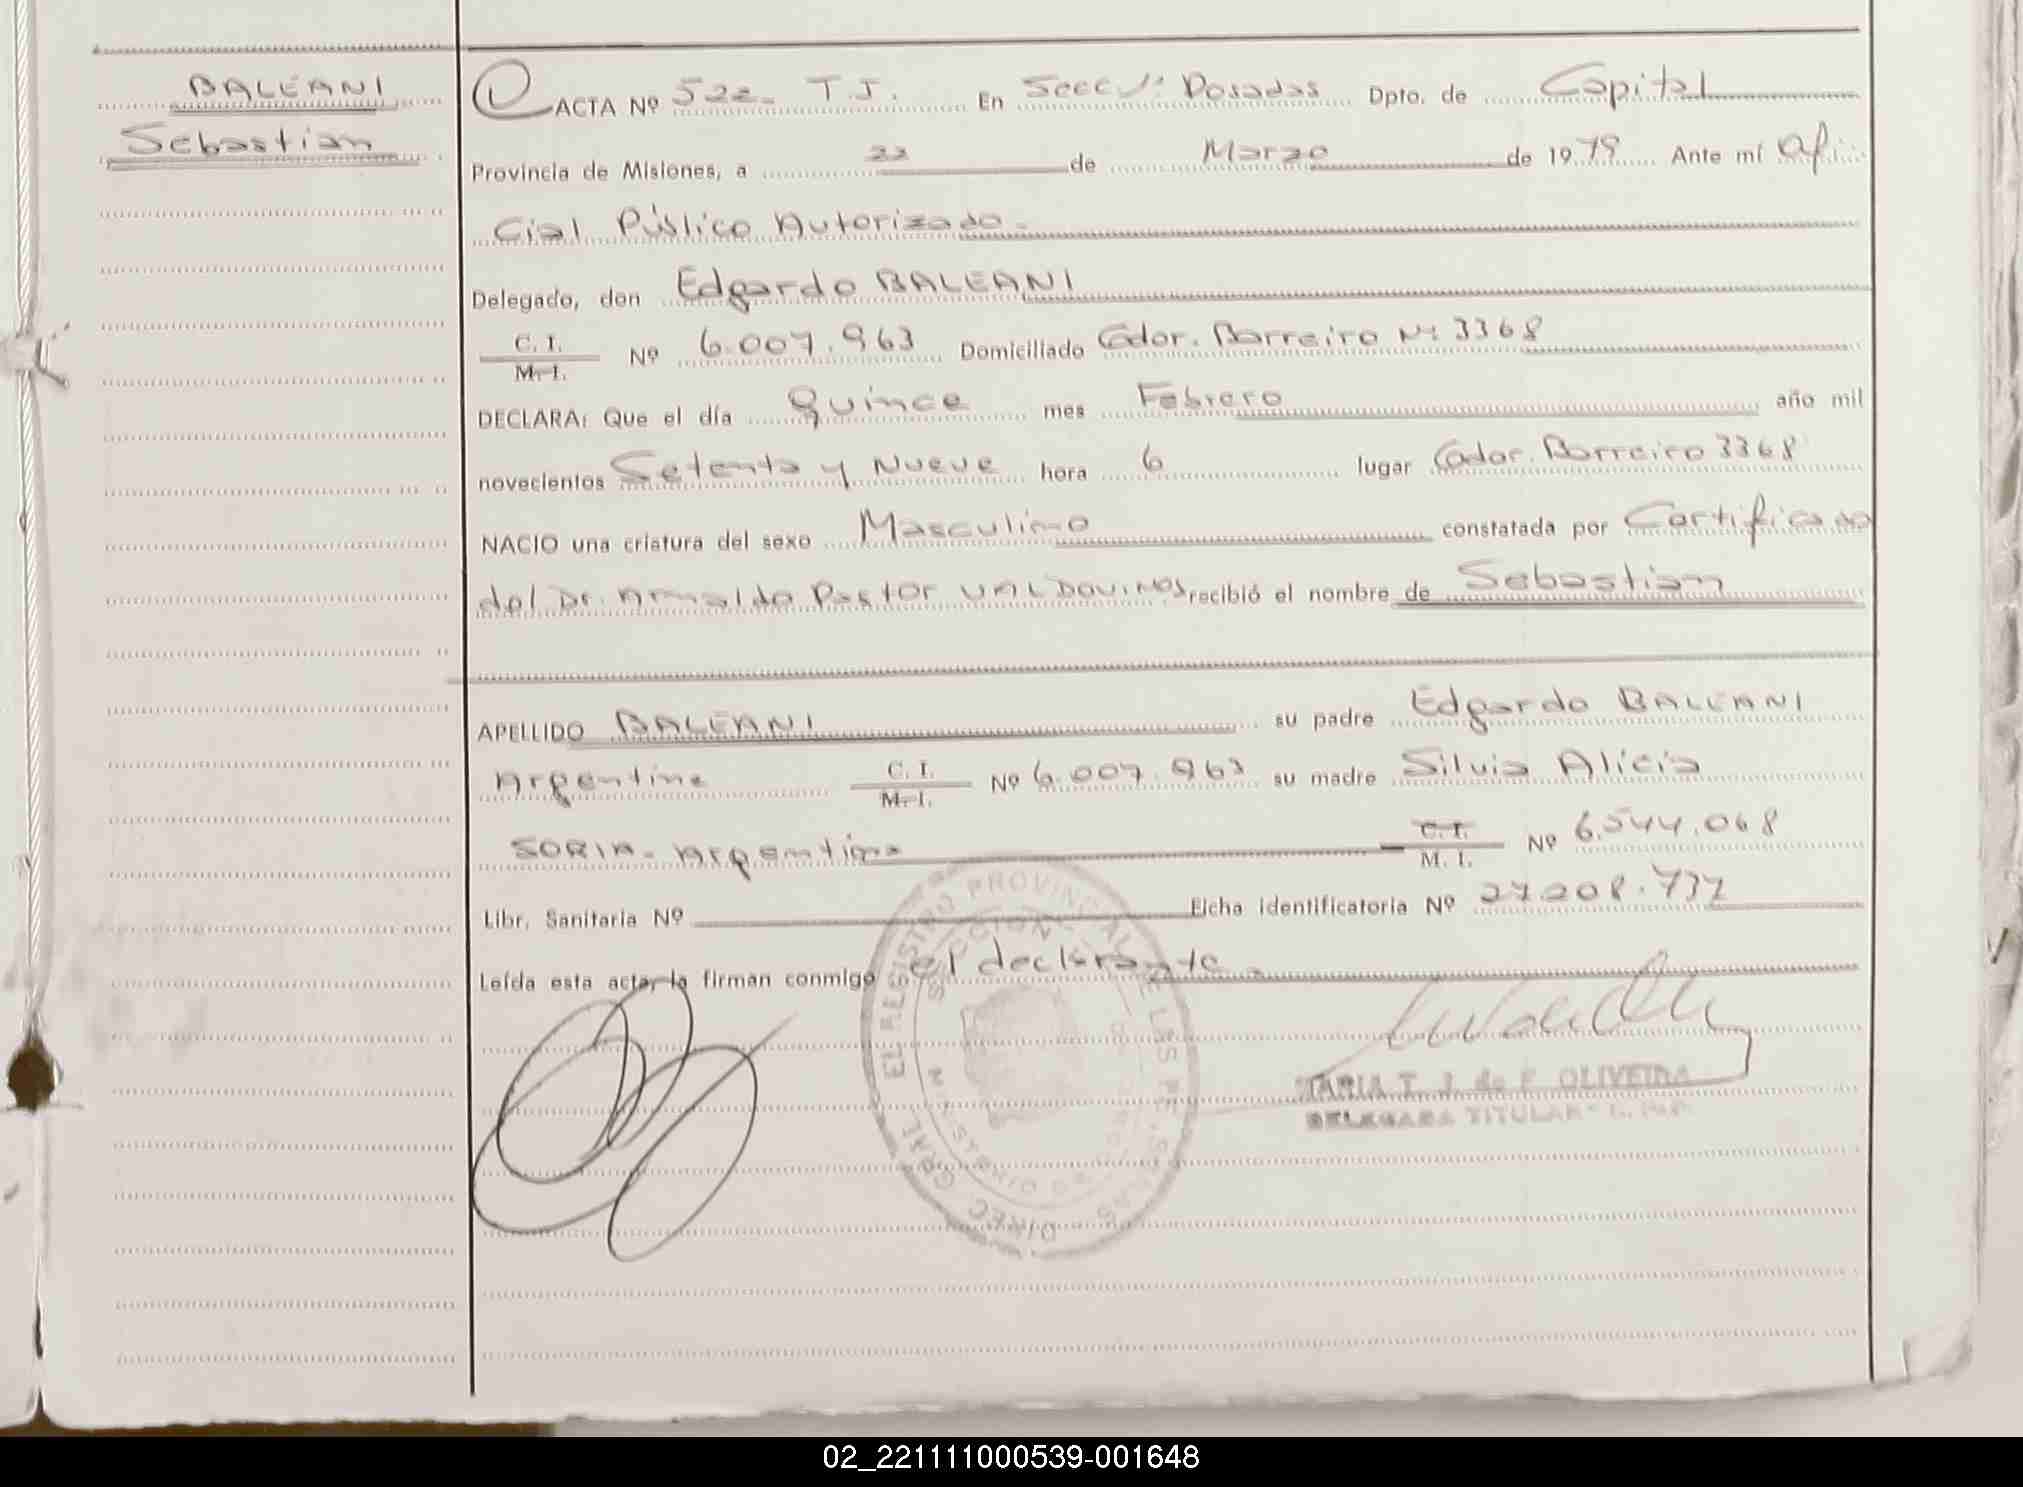 BALEANI
Sebastian
ACTA Nº 522- T.J. En Secc 1ª Posadas Dpto. de Capital
Provincia de Misiones, a 22 de Marzo de 1979 Ante mí Ofi
cial Público Autorizado.
Delegado, don Edgardo BALEANI
C. I. / M. I. Nº 6.007.963 Domiciliado Gdor. Barreiro Nº 3368
DECLARA: Que el día quince mes Febrero año mil
novecientos Setenta y Nueve hora 6 lugar Gdor. Barreiro 3368
NACIO una criatura del sexo Masculino constatada por Certificado
del Dr. Arnaldo Pastor VALDOVINOS recibió el nombre de Sebastian
APELLIDO BALEANI su padre Edgardo BALEANI
Argentino C. I. / M. I. Nº 6.007.963 su madre Silvia Alicia
SORIA - Argentina C. I. / M. I. Nº 6.544.068
Libr. Sanitaria Nº Ficha identificatoria Nº 27.208.737
Leída esta acta, la firman conmigo el declarante.
DIREC. GRAL. EL REGISTRO PROVINCIAL DE LAS PERSONAS
MINISTERIO DE GOBIERNO
MARIA T. J. de F. OLIVEIRA
DELEGADA TITULAR
02_221111000539-001648